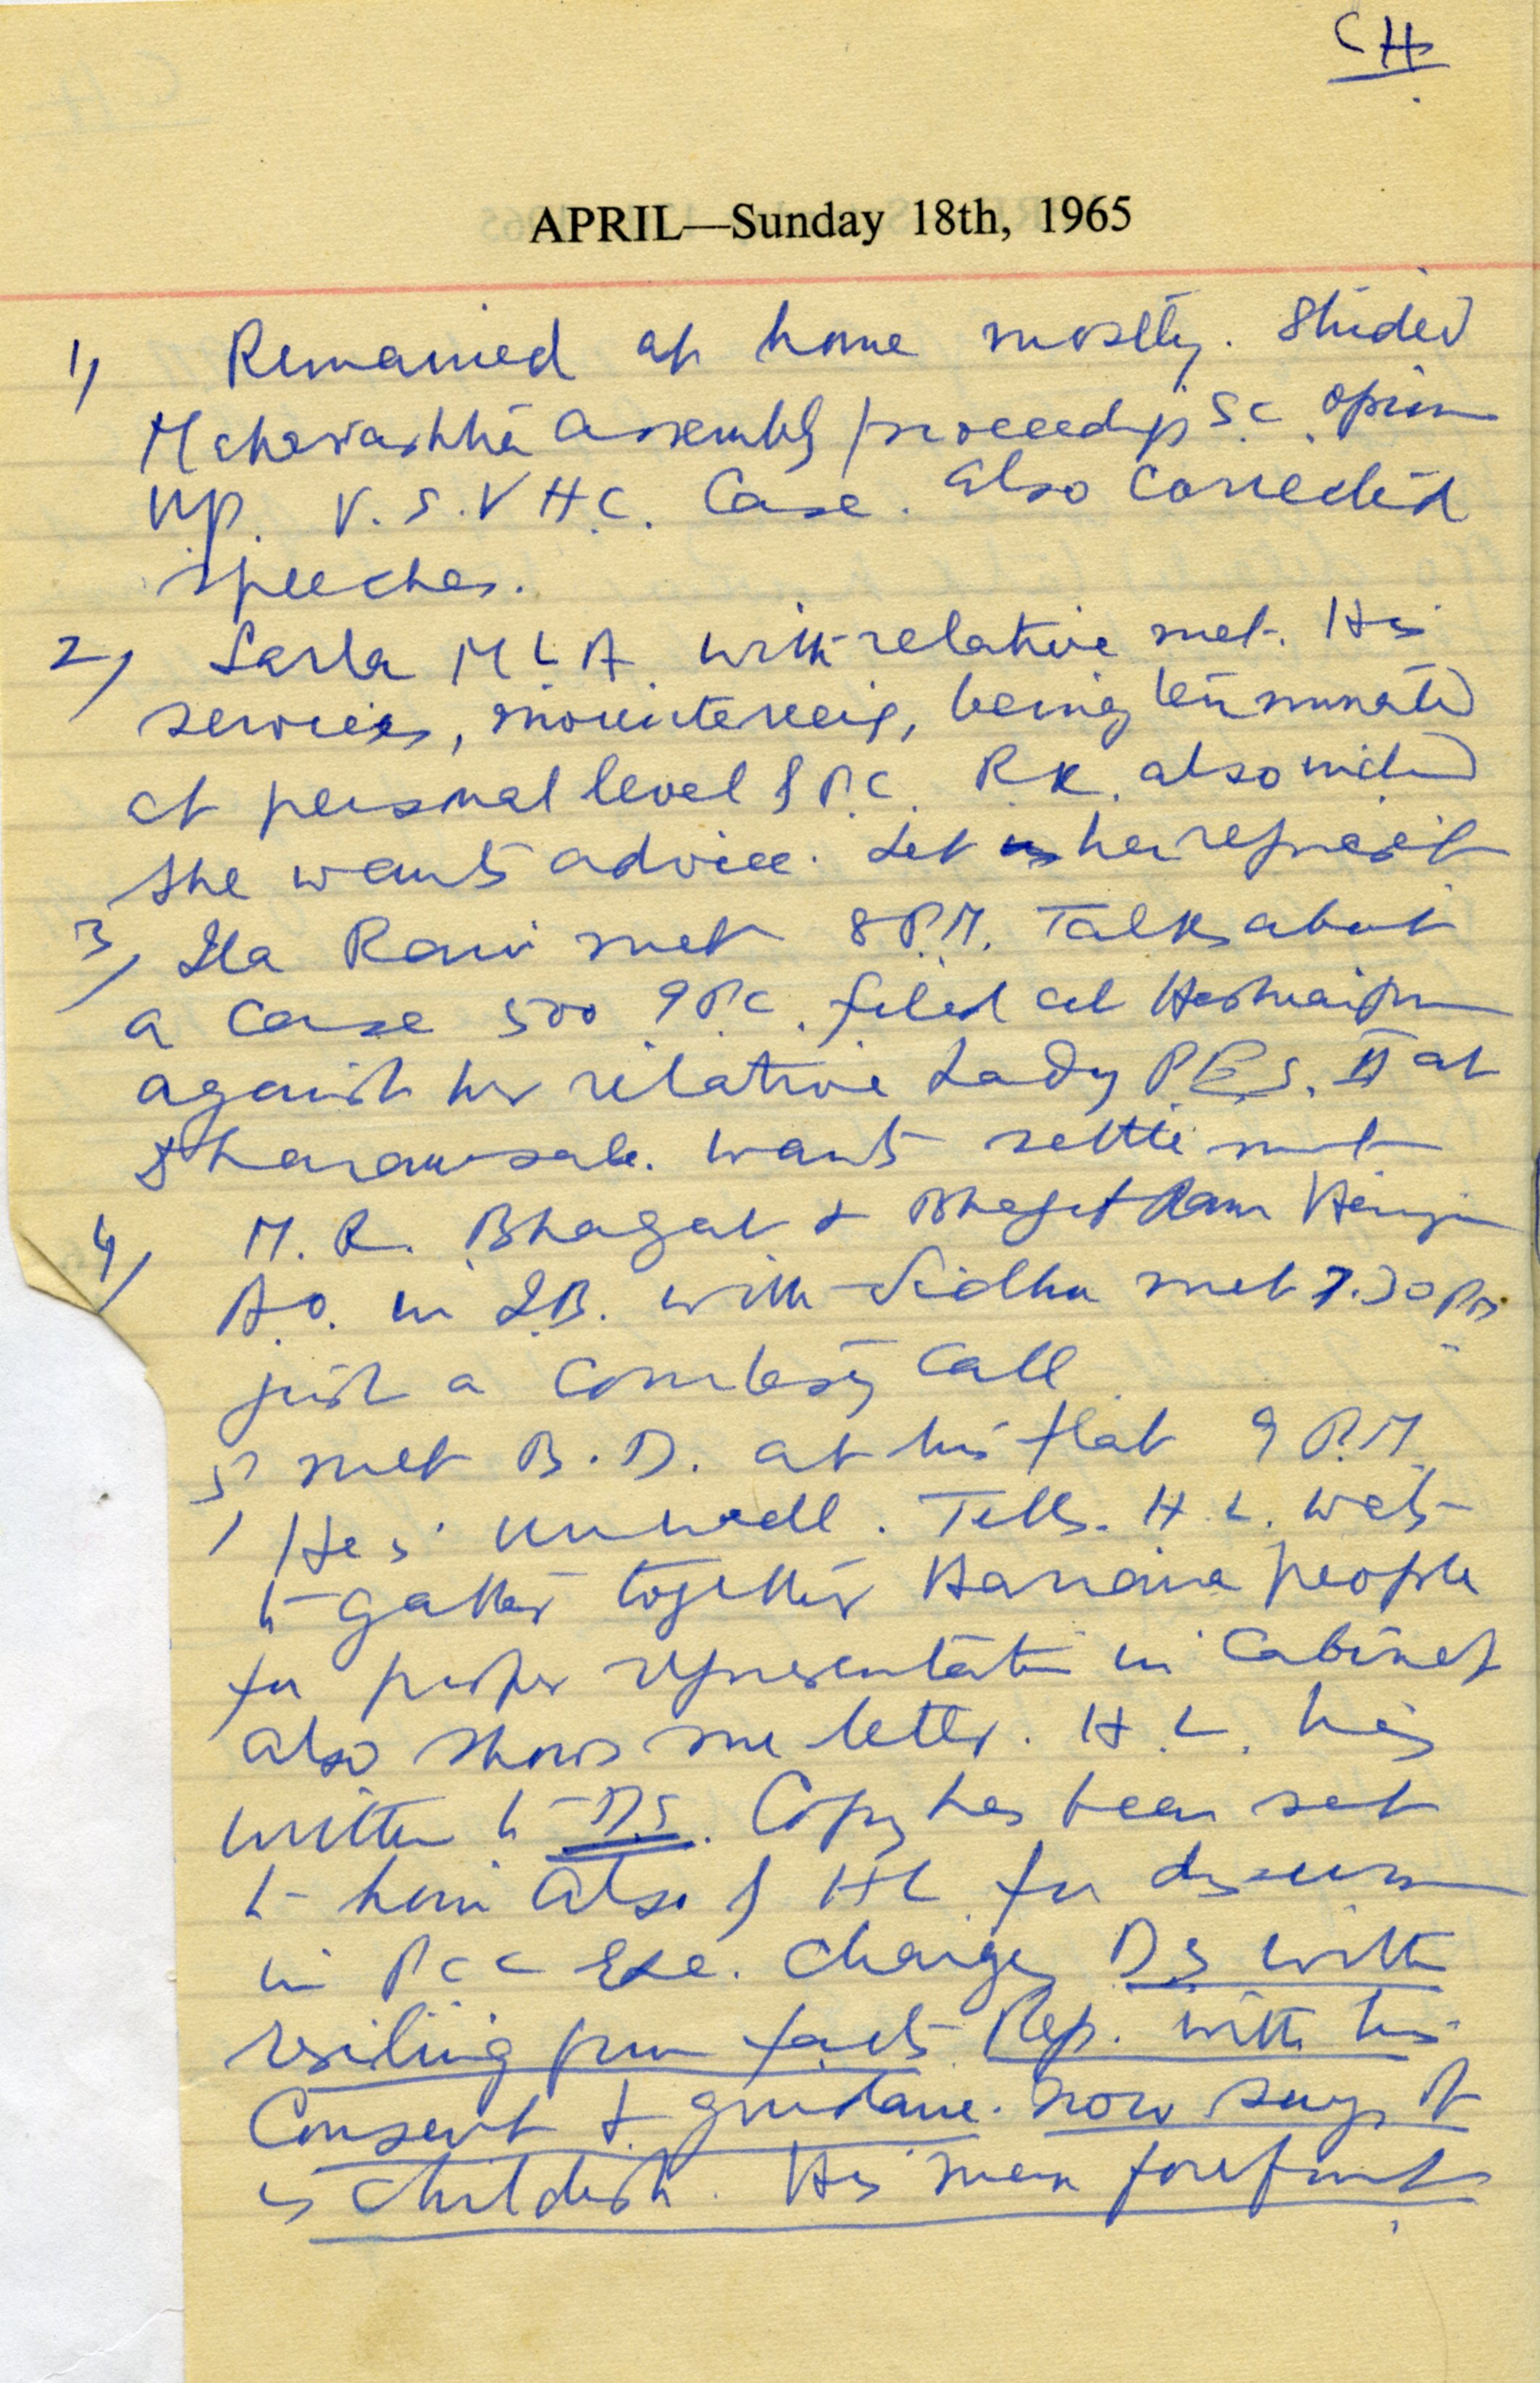 CH
APRIL—Sunday 18th, 1965
1, Remained at home mostly. Studied
Maharashtra Assembly proceedings S.C. opinion
U.P. V.S.V H.C. Case. also corrected
speeches.
2, Sarla M L A with relative met. His
services, mountaineering, being terminated
at personal level of P.C. R.K. also
she wants advice. Let her represent
3, Ila Rani met 8 P.M. Talks about
a case 500 I P C. filed at Hoshiarpur
against her relative Lady P.E.S. II at
Dharamsala. wants settlement
4, M. R. Bhagat & Bhagat Ram
A.O. in I.B. with Sidhu met 7.30 PM
just a courtesy call
5, met B. D. at his flat 9 P.M.
He is unwell. Tells. H. L. wants
to gather together Hariana people
for proper representation in Cabinet
also shows me letter. H. L. has
written to D.S. Copy has been sent
to him also of H L for discussion
in P C C Exe. Charges D.S with
resiling from facts. Rep. with his
Consent & guidance. now says it
is childish. His men forefront